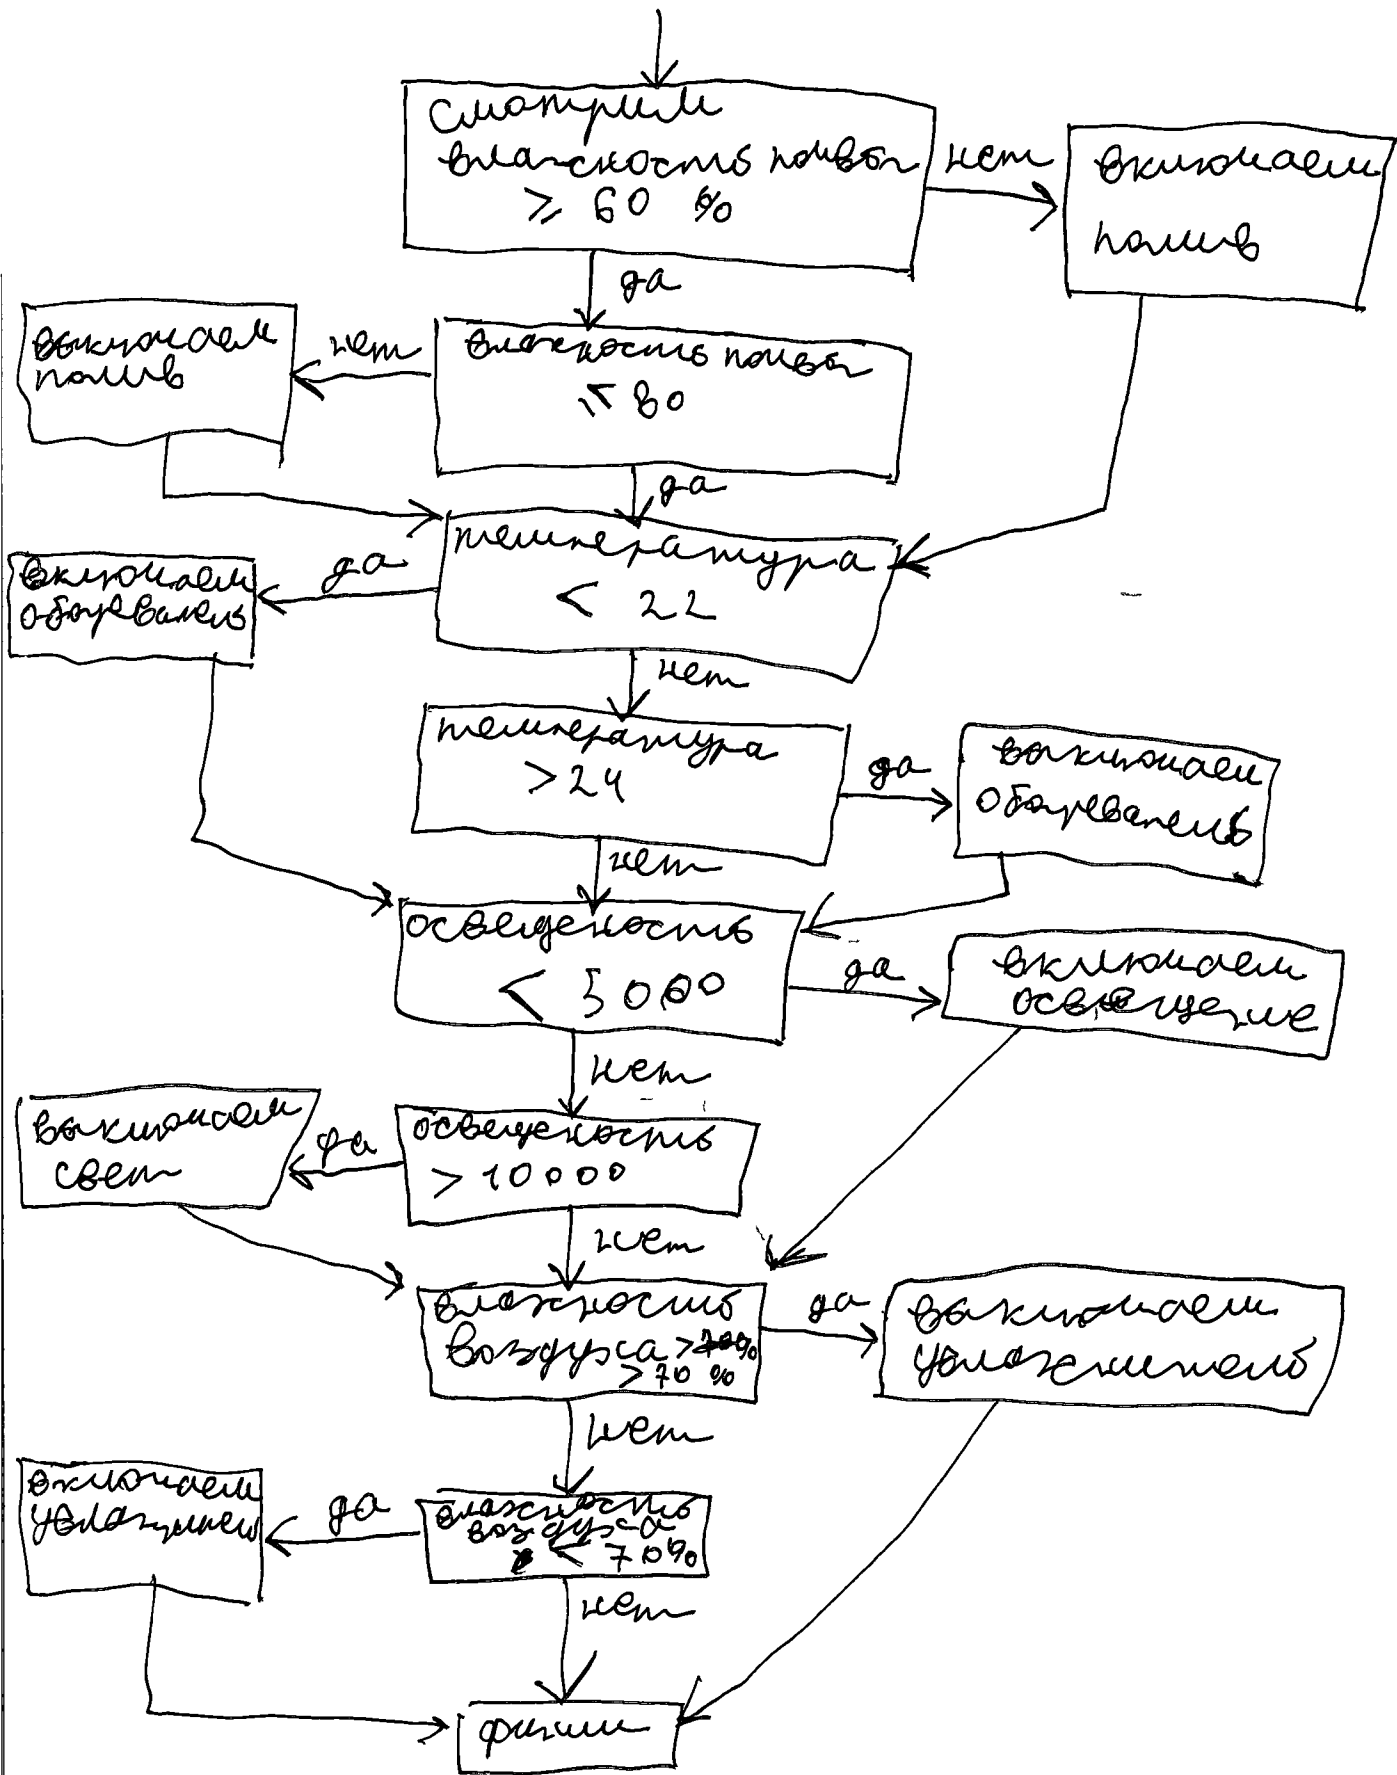 смотрим
влажность почвы
≥ 60 %
нет
включаем
полив
да
выключаем
полив
нет
влажность почвы
≤ 80
да
температура
< 22
да
включаем
обогреватель
нет
температура
> 24
да
выключаем
обогреватель
нет
освещеность
< 5000
да
включаем
освещение
нет
освещеность
> 10000
да
выключаем
свет
нет
влажность
воздуха >
> 70 %
да
выключаем
увлажнитель
нет
влажность
воздуха
< 70%
да
включаем
нет
финиш